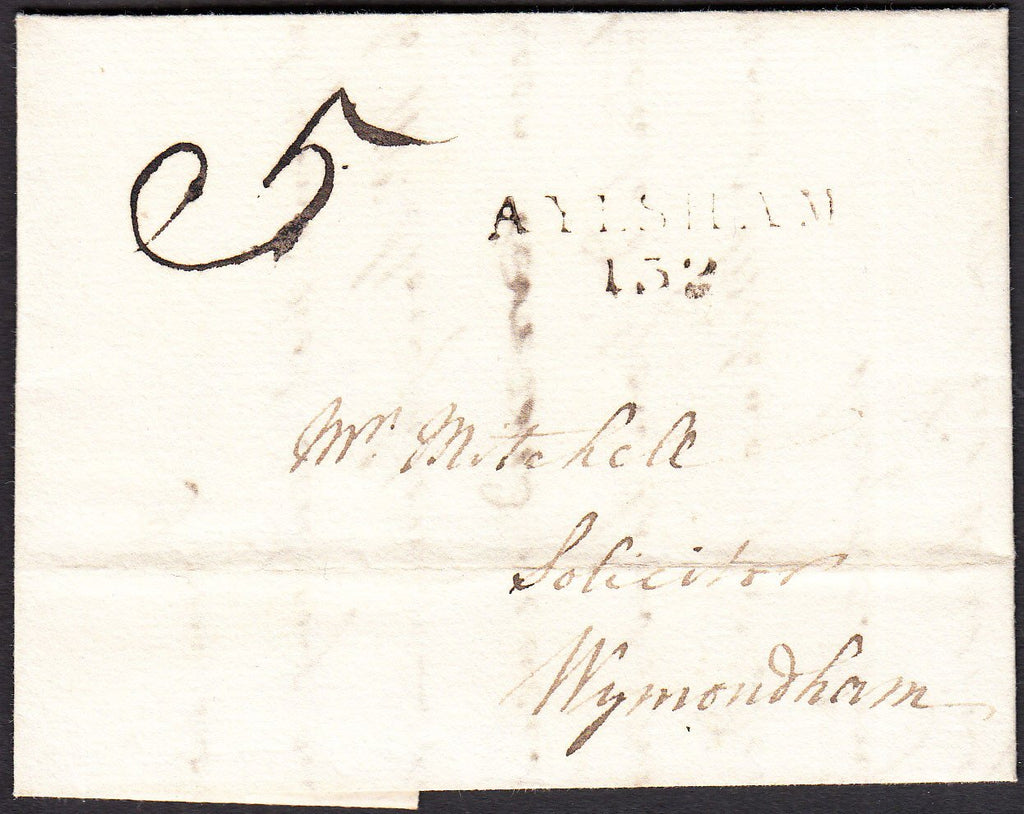 5
AYLSHAM
132
Mr. Mitchell
Solicitor
Wymondham